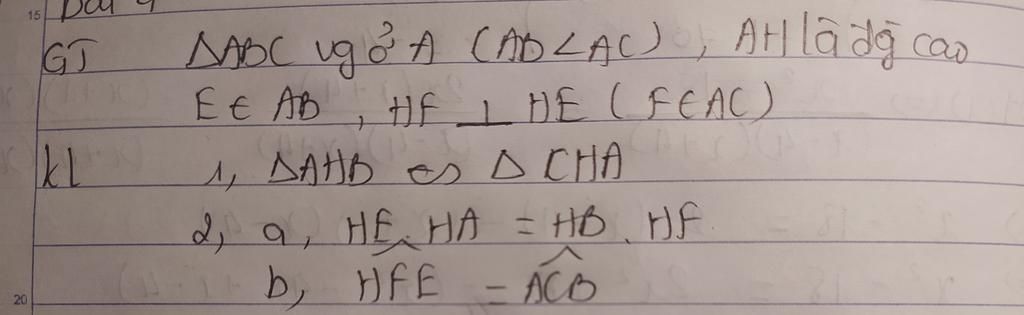 15 Bài 4
GT ΔABC vg ở A (AB < AC), AH là đg cao
E ∈ AB, HF ⊥ HE (F ∈ AC)
kl 1, ΔAHB ∽ Δ CHA
2, a, HE. HA = HB. HF
b, \widehat{HFE} = \widehat{ACB}
20